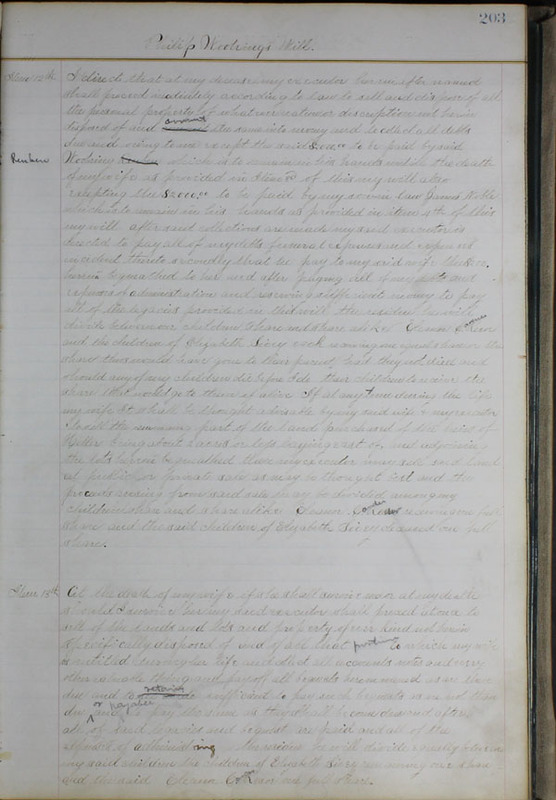 203
Philip Woolring's Will.
Item 12th. I direct that at my decease my executor herein after named
shall proceed immediately according to law to sell and dispose of all
the personal property of whatsoever or description not herein
disposed of and the same into money and to collect all debts
due and owing to me except the said $800.00 to be paid by said
Reuben Woolring which is to remain in his hands until the death
of my wife as provided in Item of this my will also
excepting the $2000.00 to be paid by my son in law James
which is to remain in his hands as provided in item 4th of this
my will after said collections are made my said executor is
directed to pay all of my debts funeral expenses and expenses
incident thereto secondly shall he pay to my said wife the $
herein bequeathed to her and after paying all of my debts and
expenses of administration and reserving sufficient money to pay
all of the legacies provided in this will the residue he will
divide between my children share and share alike Eleanor
and the children of Elizabeth Sivey each receiving one equal share the
share that would have gone to their parent had they not died and
should any of my children die before I do their children to receive the
share that would go to them if alive If at any time during the life of
my wife it shall be thought advisable by my said wife & my executor
to sell the remaining part of the land purchased of the heirs of
Miller being about acres or less laying east of and adjoining
the lots herein bequeathed then my executor may sell said land
at public or private sale as may be thought best and the
proceeds arising from said sale to be divided among my
children share and share alike Eleanor receiving one full
share and the said children of Elizabeth Sivey deceased one full
share.
Item 13th. At the death of my wife if she shall survive me or at my death
should I survive her my said executor shall proceed at once to
sell all of the lands and lots and property of every kind not herein
specifically disposed of and of all that portion to which my wife
is entitled during her life and collect all accounts notes and every
other valuable thing and pay off all bequests herein named as are then
due and to retain sufficient to pay such bequests as are not then
due or payable and to pay the same as they shall become due and after
all of said legacies and bequests are paid and all of the
expenses of administering the residue he will divide equally between
my said children the children of Elizabeth Sivey receiving one share
and the said Eleanor one full share.